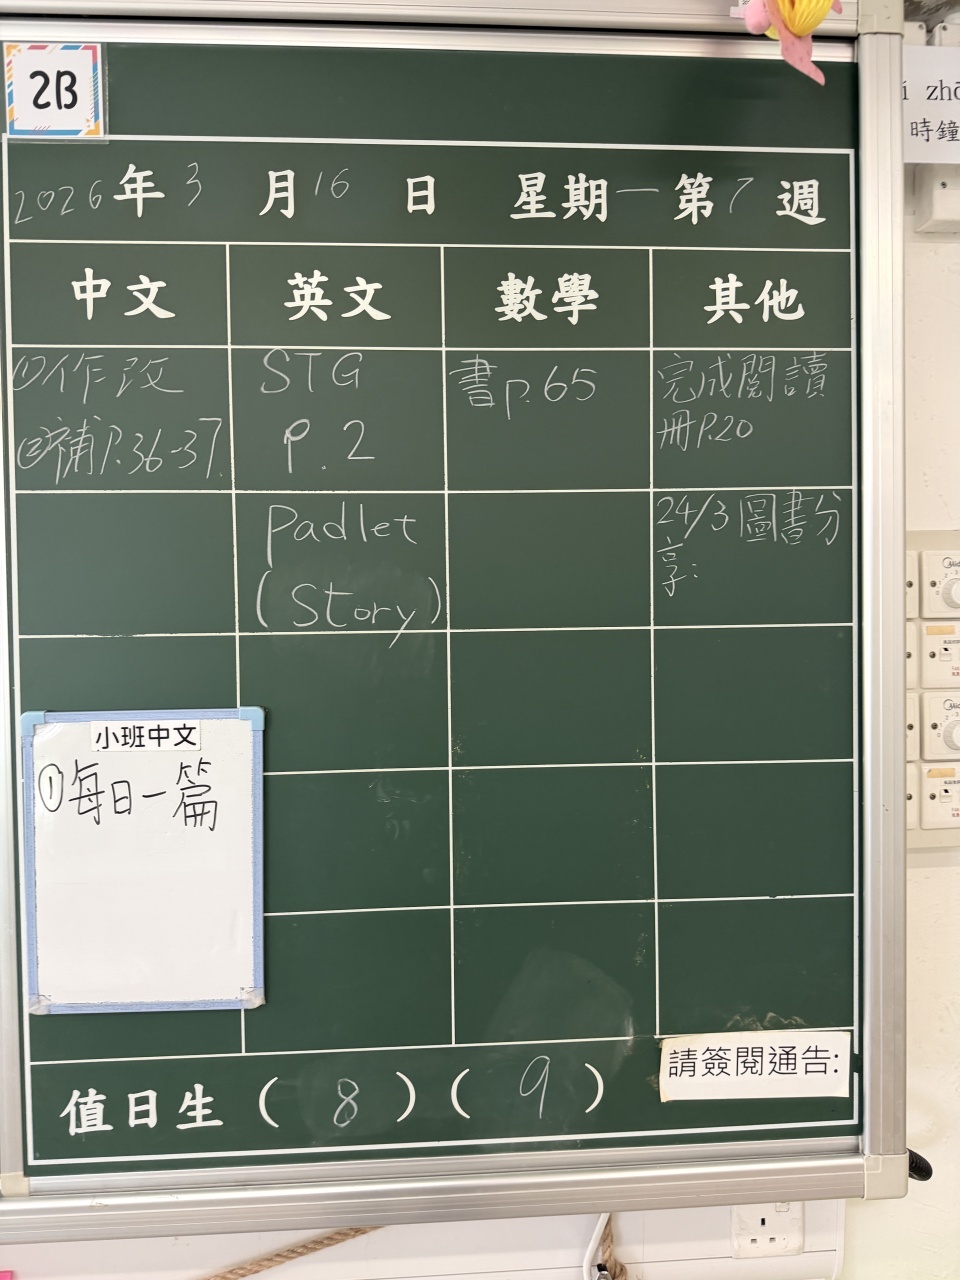 2B
2026年3月16日 星期一 第7週
中文 英文 數學 其他
①作改
②補P.36-37
STG
P.2
書p.65
完成閱讀
冊P.20
Padlet
(Story)
24/3圖書分
享:
小班中文
①每日一篇
值日生(8)(9)
請簽閱通告:
時鐘